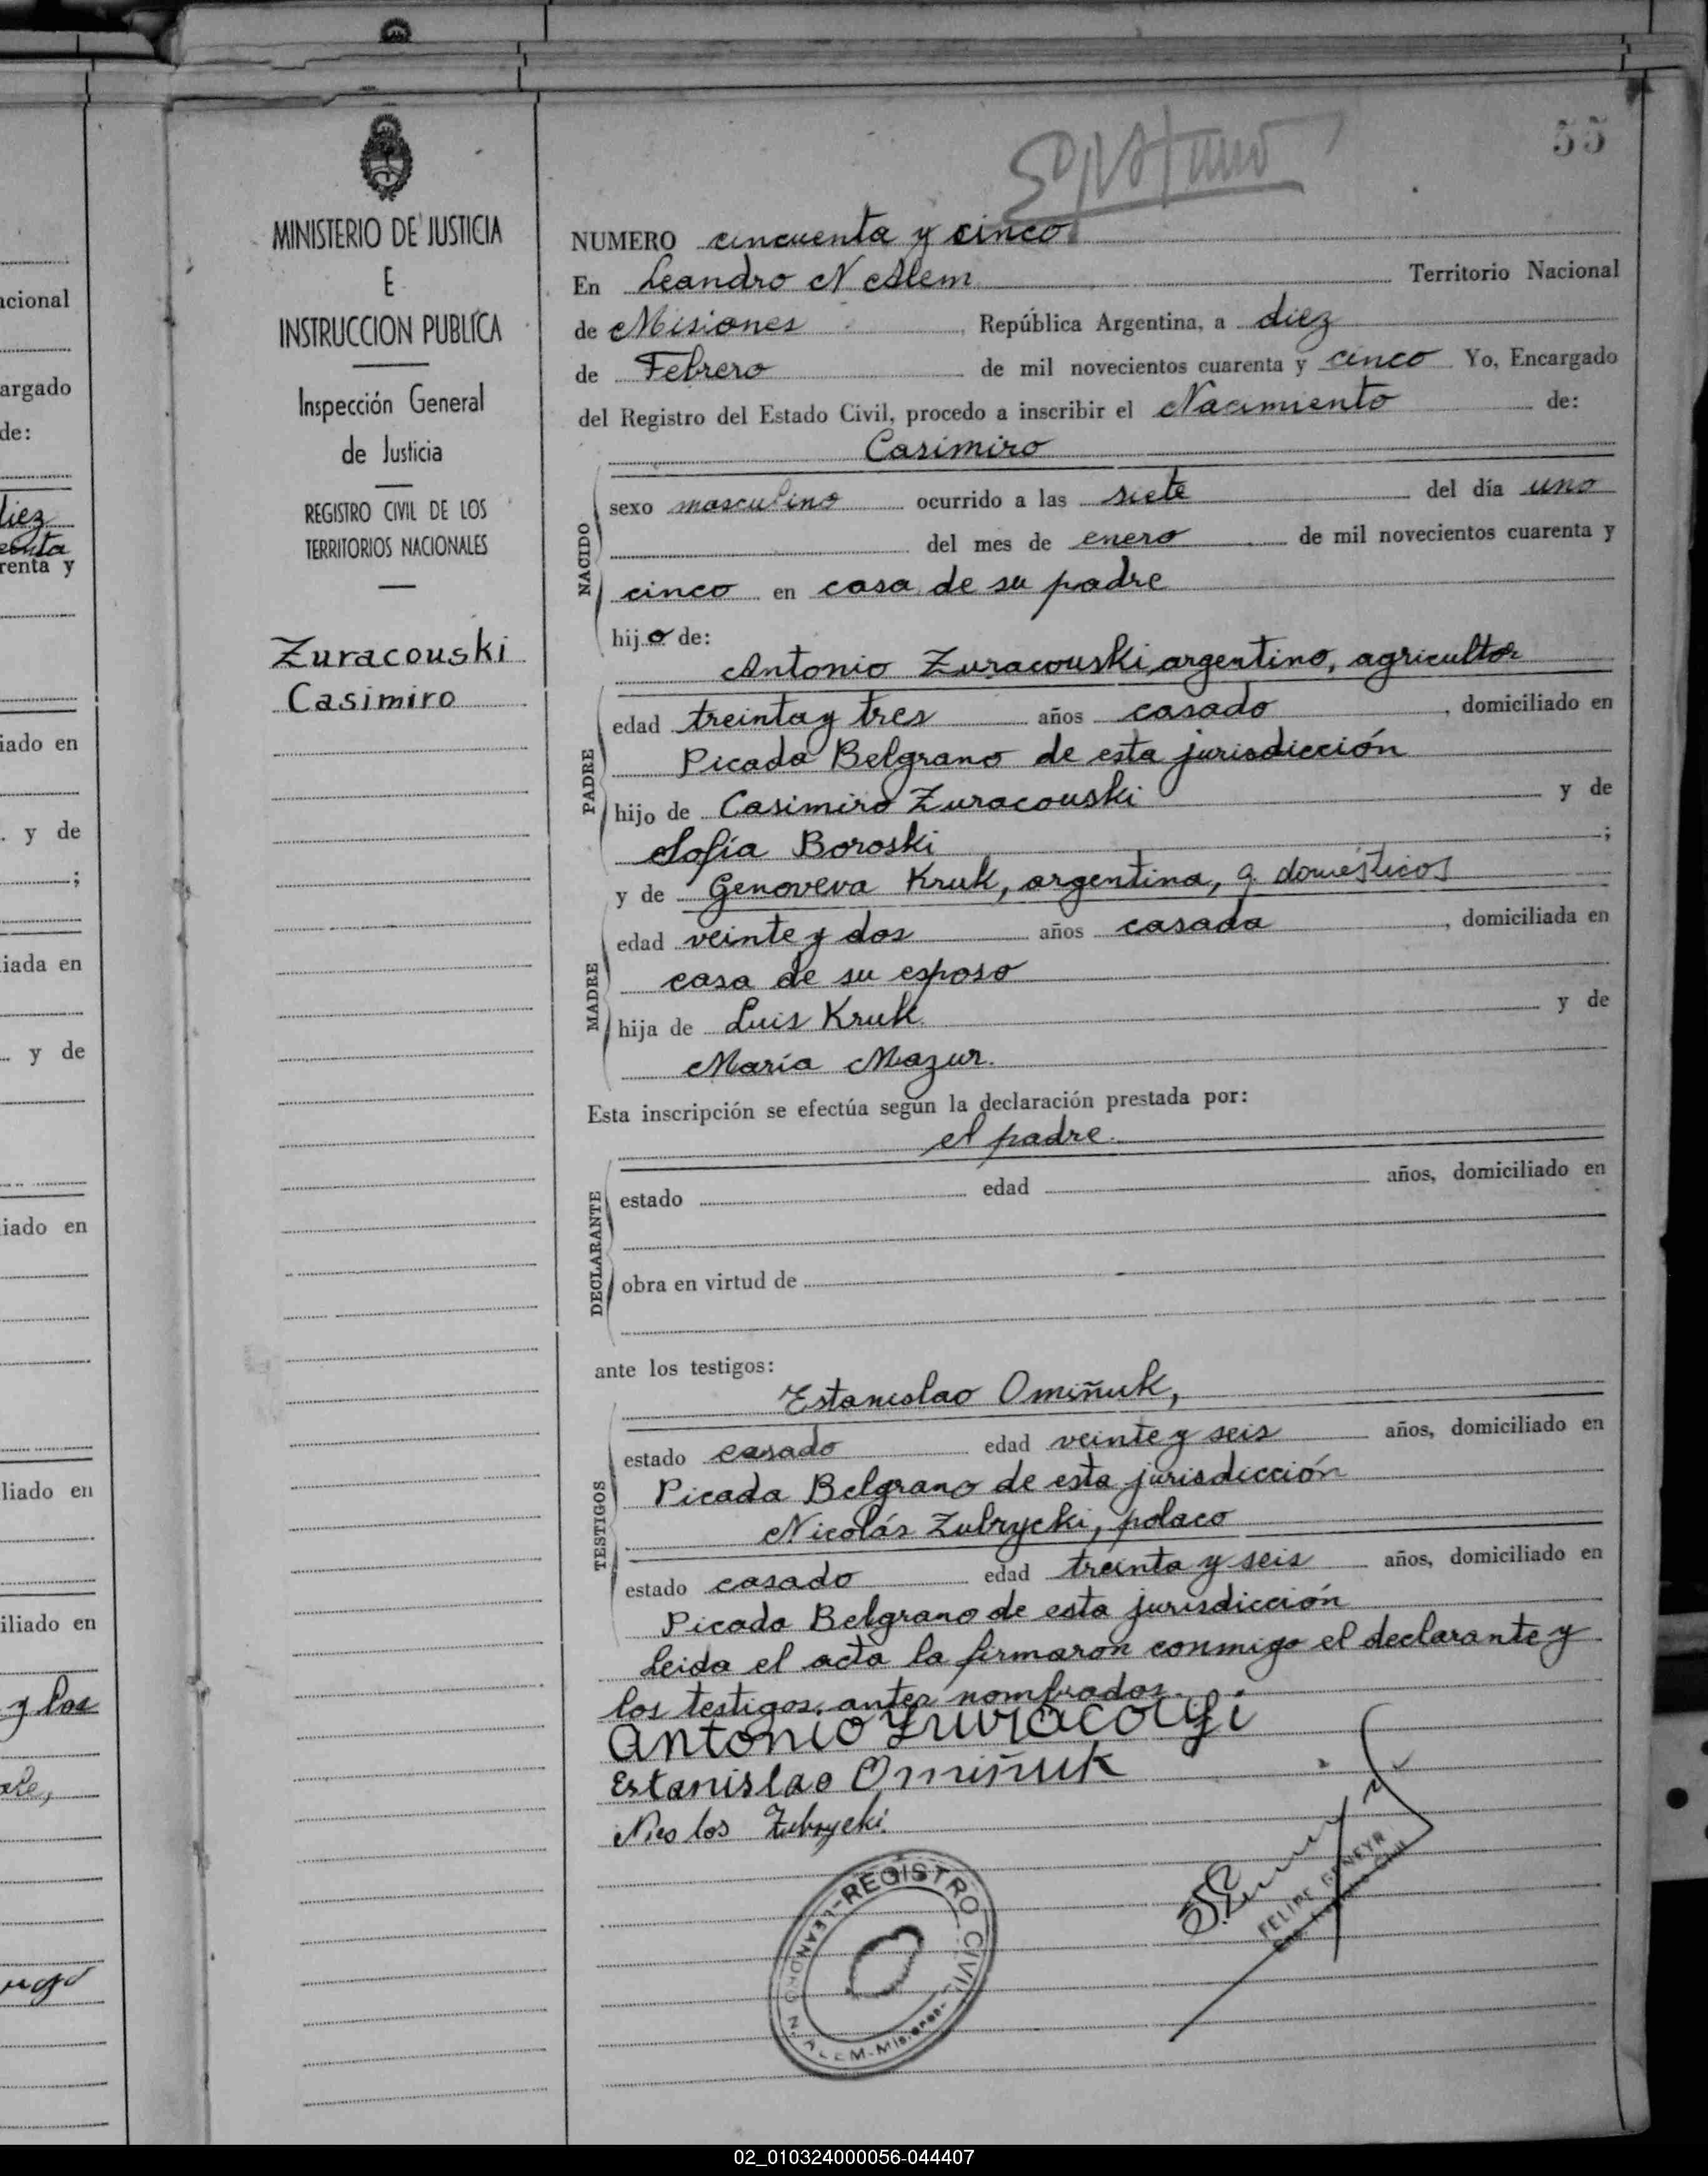 55
NUMERO cincuenta y cinco
En Leandro N Alem Territorio Nacional
de Misiones, República Argentina, a diez
de Febrero de mil novecientos cuarenta y cinco Yo, Encargado
del Registro del Estado Civil, procedo a inscribir el Nacimiento de:
Casimiro
NACIDO
sexo masculino ocurrido a las siete del día uno
del mes de enero de mil novecientos cuarenta y
cinco en casa de su padre
hijo de:
Antonio Zuracouski argentino, agricultor
PADRE
edad treinta y tres años casado, domiciliado en
Picada Belgrano de esta jurisdicción
hijo de Casimiro Zuracouski y de
Sofía Boroski;
y de Genoveva Kruk, argentina, q. domésticos
MADRE
edad veinte y dos años casada, domiciliada en
casa de su esposo
hija de Luis Kruk y de
María Mazur.
Esta inscripción se efectúa según la declaración prestada por:
el padre
DECLARANTE
estado edad años, domiciliado en
obra en virtud de
ante los testigos:
Estanislao Omiñuk,
TESTIGOS
estado casado edad veinte y seis años, domiciliado en
Picada Belgrano de esta jurisdicción
Nicolás Zubrycki, polaco
estado casado edad treinta y seis años, domiciliado en
Picada Belgrano de esta jurisdicción
Leida el acta la firmaron conmigo el declarante y
los testigos antes nombrados.
Antonio
Estanislao Omiñuk
Nicolos Zubrycki
REGISTRO CIVIL
LEANDRO N. ALEM-Misiones-
FELIPE
MINISTERIO DE JUSTICIA
E
INSTRUCCION PUBLICA
Inspección General
de Justicia
REGISTRO CIVIL DE LOS
TERRITORIOS NACIONALES
Zuracouski
Casimiro
acional
argado
de:
diez
renta y
iado en
y de
;
iada en
y de
iado en
liado en
iliado en
y los
02_010324000056-044407